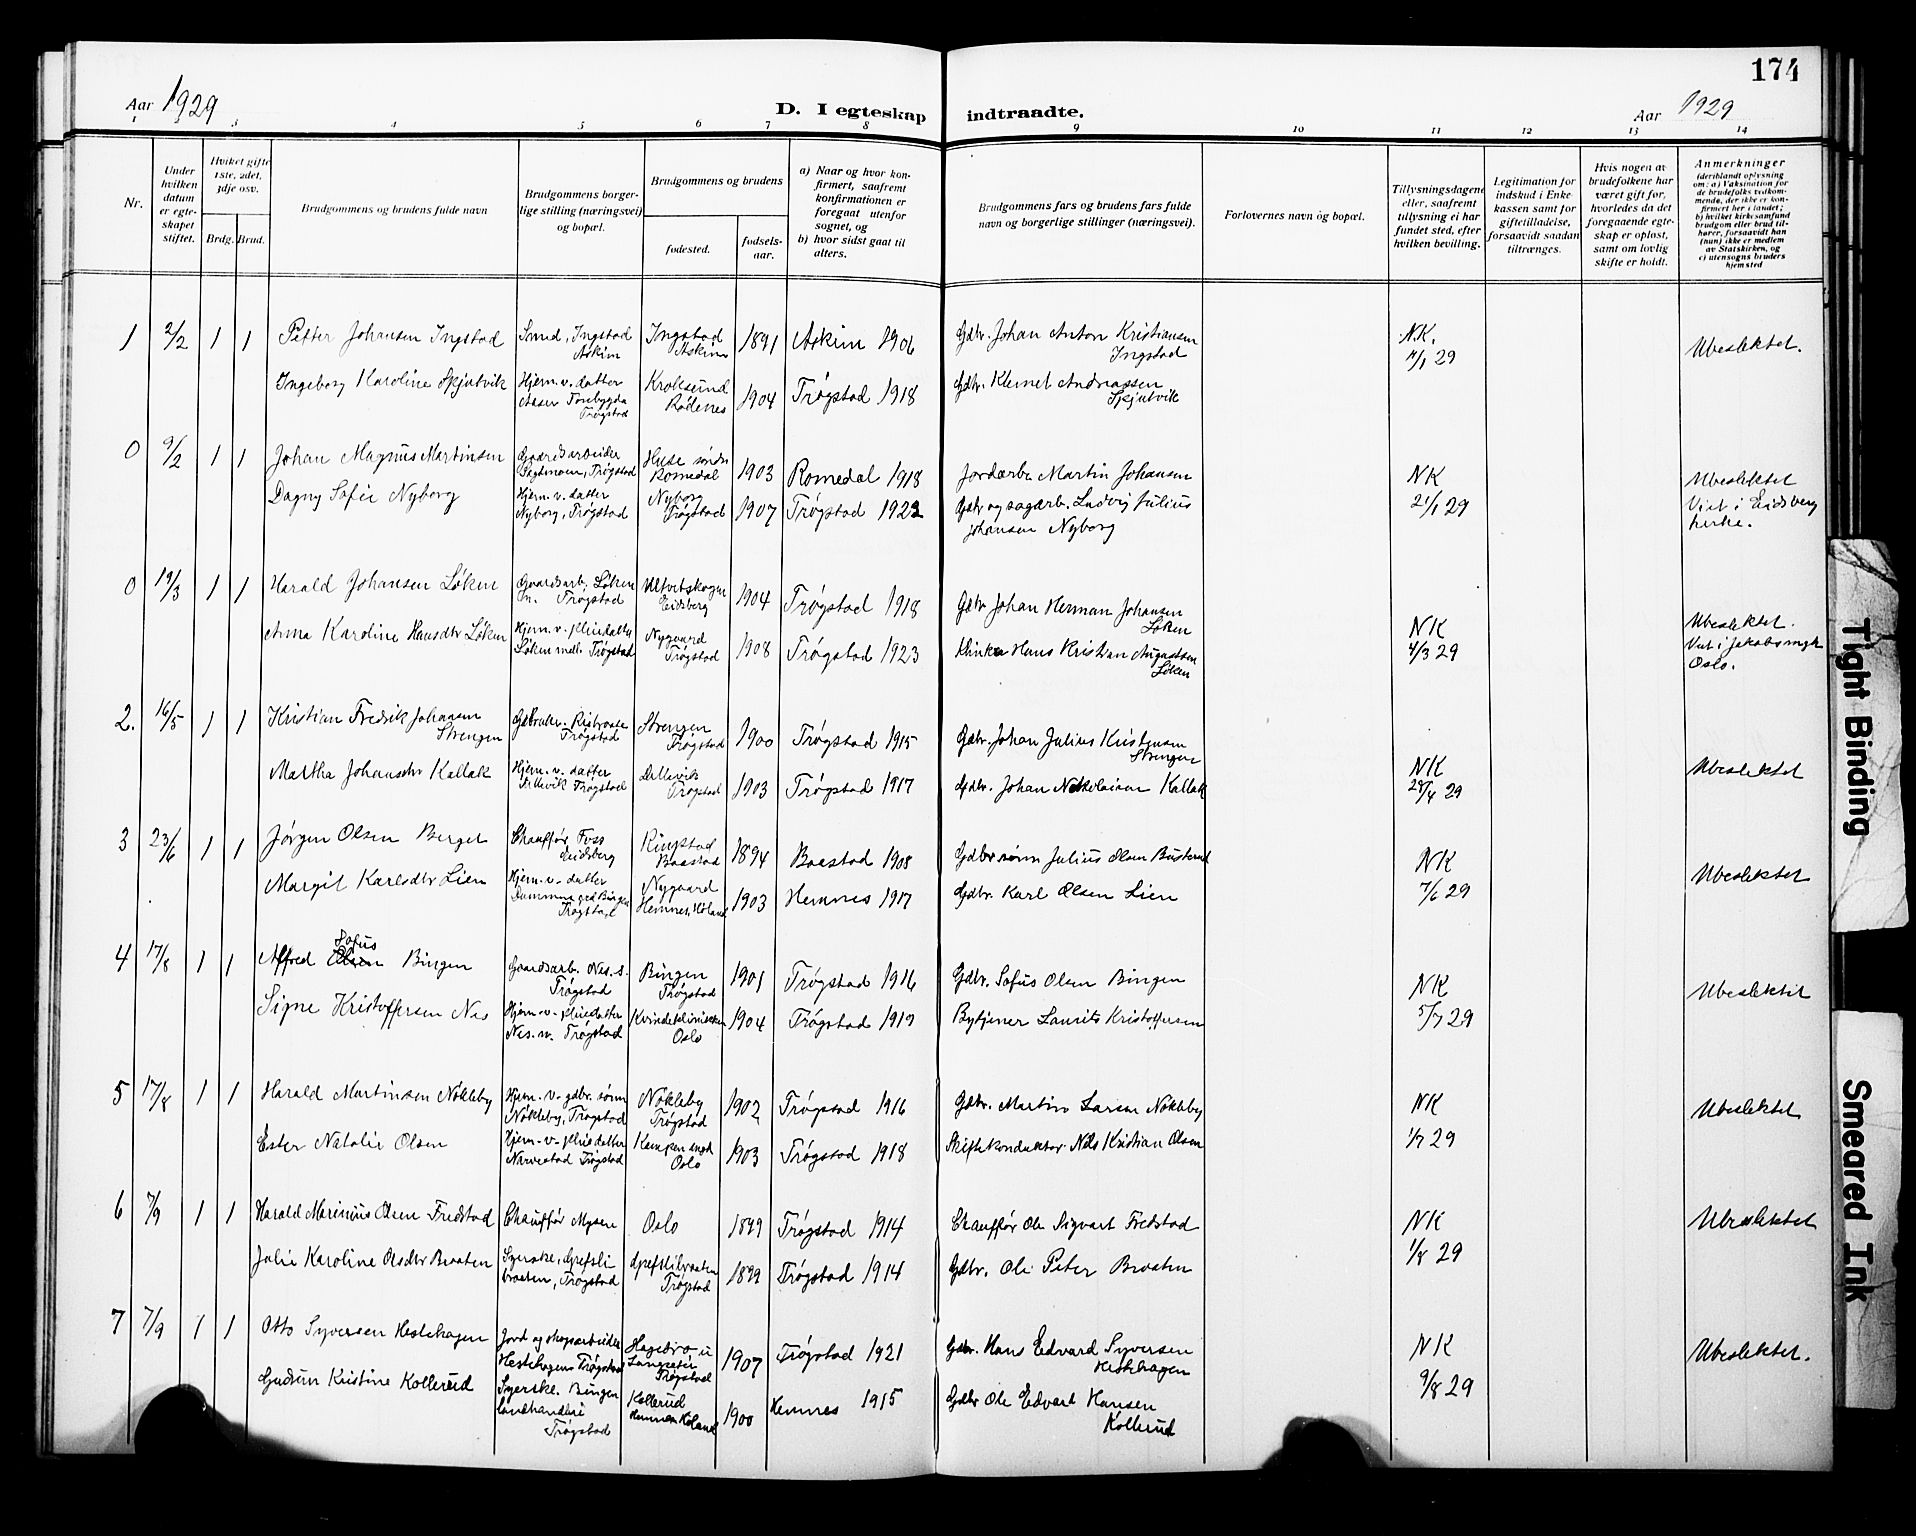 174
Aar 1929
D. I egteskap indtraadte.
Aar 1929
1 3 4 5 6 7 8 9 10 11 12 13 14
Nr.
Under hvilken datum er egteskapet stiftet.
Hvilket gifte 1ste, 2det, 3dje osv.
Brdg. Brud.
Brudgommens og brudens fulde navn
Brudgommens borgerlige stilling (næringsvei) og bopæl.
Brudgommens og brudens
fødested.
fødselsaar.
a) Naar og hvor konfirmert, saafremt konfirmationen er foregaat utenfor sognet, og
b) hvor sidst gaat til alters.
Brudgommens fars og brudens fars fulde navn og borgerlige stillinger (næringsvei).
Forlovernes navn og bopæl.
Tillysningsdagene eller, saafremt tillysning ei har fundet sted, efter hvilken bevilling.
Legitimation for indskud i Enkekassen samt for giftetilladelse, forsaavidt saadan tiltrænges.
Hvis nogen av brudefolkene har været gift før, hvorledes da det foregaaende egteskap er opløst, samt om lovlig skifte er holdt.
Anmerkninger (deriblandt oplysning om: a) Vaksination for de brudefolks vedkommende, der ikke er konfirmert her i landet; b) hvilket kirkesamfund brudgom eller brud tilhører, forsaavidt han (hun) ikke er medlem av Statskirken, og c) utensogns bruders hjemsted
1 2/2 1 1 Petter Johansen Ingstad Smed, Ingstad Askim Ingstad Askim 1891 Askim 1906 Gdbr. Johan Anton Kristiansen Ingstad NK. 29 Ubeslektet.
Ingeborg Karoline Skjutvik Hjem. v. datter Tosebygda Trøgstad Kroksund Rødenes 1904 Trøgstad 1918 Gdbr. Klemet Andreassen Skjutvik
0 9/2 1 1 Johan Magnus Martinsen Gaardsarbeider Trøgstad Huse søndre Romedal 1903 Romedal 1918 Jordarb. Martin Johansen NK Ubeslektet
Dagny Sofie Nyborg Hjem. v. datter Nyborg, Trøgstad Nyborg Trøgstad 1907 Trøgstad 1922 Gdbr og sagarb. Ludvig Julius Johansen Nyborg 21/1 29 Viet i Eidsberg kirke.
0 19/3 1 1 Harald Johansen Løken Gaardsarb. Løken Trøgstad Eidsberg 1904 Trøgstad 1918 Gdbr Johan Herman Johansen Løken NK Ubeslektet.
Anna Karoline Hansdtr Løken Hjem. v. pleiedatter Løken mell. Trøgstad Nygaard Trøgstad 1908 Trøgstad 1923 Hans Kristian Augustsen Løken 4/3 29 Viet i Oslo.
2. 16/5 1 1 Kristian Fredrik Johansen Strengen Trøgstad Strengen Trøgstad 1900 Trøgstad 1915 Gdbr. Johan Julius Kristensen Strengen NK Ubeslektet
Martha Johansdtr Kallak Hjem. v. datter Trøgstad Trøgstad 1903 Trøgstad 1917 Gdbr. Johan Nikolaisen Kallak 29
3 23/6 1 1 Jørgen Olsen Berget Chauffør Foss Eidsberg Ringstad Baastad 1894 Baastad 1908 Gdbrsønn Julius Olsen NK Ubeslektet
Margit Karlsdtr Lien Hjem. v. datter Trøgstad Nygaard Hemnes, Høland 1903 Hemnes 1917 Gdbr. Karl Olsen Lien 7/6 29
4 17/8 1 1 Alfred Sofus Bingen Gaardsarb. Nes. s. Trøgstad Bingen Trøgstad 1901 Trøgstad 1916 Gdbr. Sofus Olsen Bingen NK Ubeslektet
Signe Kristoffersen Nes Hjem. v. pleiedatter Nes. Trøgstad Kvindeklinikken Oslo 1904 Trøgstad 1919 Bytjener Laurits Kristoffersen 5/7 29
5 17/8 1 1 Harald Martinsen Nökleby Hjem. v. gdbr. sønn Nökleby, Trøgstad Nökleby Trøgstad 1902 Trøgstad 1916 Gdbr. Martin Larsen Nökleby NK Ubeslektet
Ester Natalie Olsen Hjem. v. pleiedatter Trøgstad Oslo 1903 Trøgstad 1918 Skiftekonduktør Nils Kristian Olsen 1/7 29
6 7/9 1 1 Harald Marinius Olsen Fredstad Chauffør Mysen Oslo 1899 Trøgstad 1914 Chauffør Ole Sigvart Fredstad NK Ubeslektet
Julie Karoline Olsdtr Braaten Syerske, Grefslibraaten, Trøgstad Grefslibraaten Trøgstad 1899 Trøgstad 1914 Gdbr. Ole Peter Braaten 1/8 29
7 7/9 1 1 Otto Syversen Hestehagen Jord og skogsarbeider Hestehagen Trøgstad Trøgstad 1907 Trøgstad 1921 Gdbr. Hans Edvard Syversen Hestehagen NK Ubeslektet.
Gudrun Kristine Kollerud Syerske. Bingen landhandleri Trøgstad Kollerud Hemnes Høland 1900 Hemnes 1915 Gdbr Ole Edvart Hansen Kollerud 9/8 29
Tight Binding
Smeared Ink